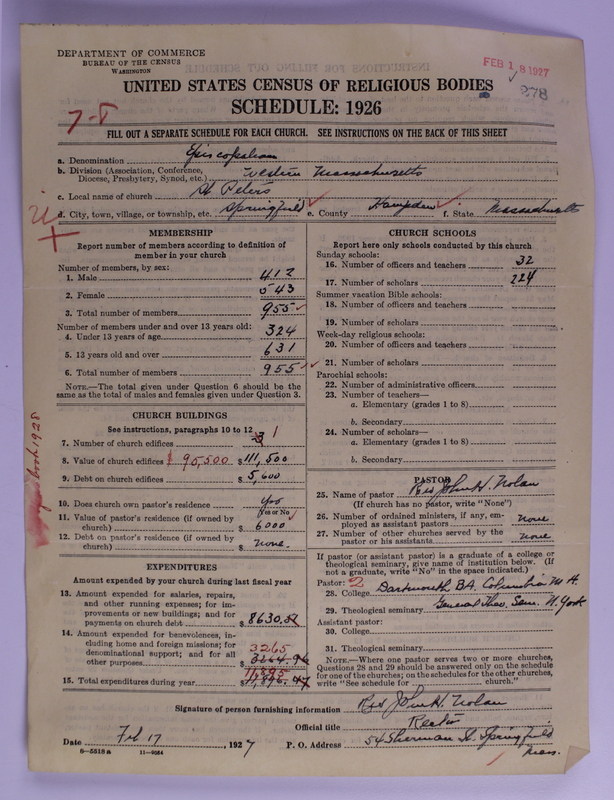 DEPARTMENT OF COMMERCE
BUREAU OF THE CENSUS
WASHINGTON
FEB 18 1927
278
UNITED STATES CENSUS OF RELIGIOUS BODIES
SCHEDULE: 1926
7-8
FILL OUT A SEPARATE SCHEDULE FOR EACH CHURCH. SEE INSTRUCTIONS ON THE BACK OF THIS SHEET
a. Denomination Episcopalian
b. Division (Association, Conference, Diocese, Presbytery, Synod, etc.) Western Massachusetts
c. Local name of church St Peters
d. City, town, village, or township, etc. Springfield e. County Hampden f. State Massachusetts
MEMBERSHIP
Report number of members according to definition of
member in your church
Number of members, by sex:
1. Male 412
2. Female 543
3. Total number of members 955
Number of members under and over 13 years old:
4. Under 13 years of age 324
5. 13 years old and over 631
6. Total number of members 955
NOTE.—The total given under Question 6 should be
same as the total of males and females given under Question 3.
CHURCH BUILDINGS
See instructions, paragraphs 10 to 12
7. Number of church edifices 3 1
8. Value of church edifices $ 95,500 $ 111,500
9. Debt on church edifices $ 5,600
10. Does church own pastor's residence yes
(Yes or No)
11. Value of pastor's residence (if owned by
church) $ 6000
12. Debt on pastor's residence (if owned by
church) $ none.
EXPENDITURES
Amount expended by your church during last fiscal year
13. Amount expended for salaries, repairs,
and other running expenses; for im-
provements or new buildings; and for
payments on church debt $ 8630.51
14. Amount expended for benevolences, in-
cluding home and foreign missions; for
denominational support; and for all
3265
other purposes $ 3264.96
11,895
15. Total expended during year $ 11,895.47
CHURCH SCHOOLS
Report here only schools conducted by this church
Sunday schools:
16. Number of officers and teachers 32
17. Number of scholars 224
Summer vacation Bible schools:
18. Number of officers and teachers
19. Number of scholars
Week-day religious schools:
20. Number of officers and teachers
21. Number of scholars
Parochial schools:
22. Number of administrative officers
23. Number of teachers—
a. Elementary (grades 1 to 8)
b. Secondary
24. Number of scholars—
a. Elementary (grades 1 to 8)
b. Secondary
PASTOR
25. Name of pastor Rev John H. Nolan
(If church has no pastor, write "None")
26. Number of ordained ministers, if any, em-
ployed as assistant pastors none
27. Number of other churches served by the
pastor or his assistants none
If pastor (or assistant pastor) is a graduate of a college or
theological seminary, give name of institution below. (If
not a graduate, write "No" in the space indicated.)
Pastor: 2
28. College Dartmouth B.A. Columbia M A.
29. Theological seminary General Theo. Sem. N. York
Assistant pastor:
30. College
31. Theological seminary
NOTE.—Where one pastor serves two or more churches,
Questions 28 and 29 should be answered only on the schedule
for one of the churches; on the schedules for the other churches,
write "See schedule for church."
Signature of person furnishing information Rev John H. Nolan
Official title Rector
Date Feb 17, 1927 P. O. Address 54 Sherman St. Springfield
Mass.
8-5518a 11-9084